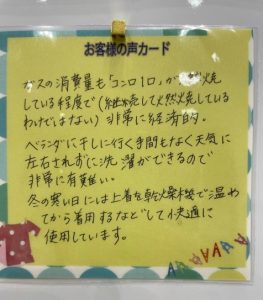 お客様の声カード
ガスの消費量も「コンロ1口」が
している程度で(継続して燃焼している
わけではない)非常に経済的。
ベランダに干しに行く手間もなく天気に
左右されずに洗濯ができるので
非常に有難い。
冬の寒い日には上着を乾燥機で温め
てから着用するなどして快適に
使用しています。